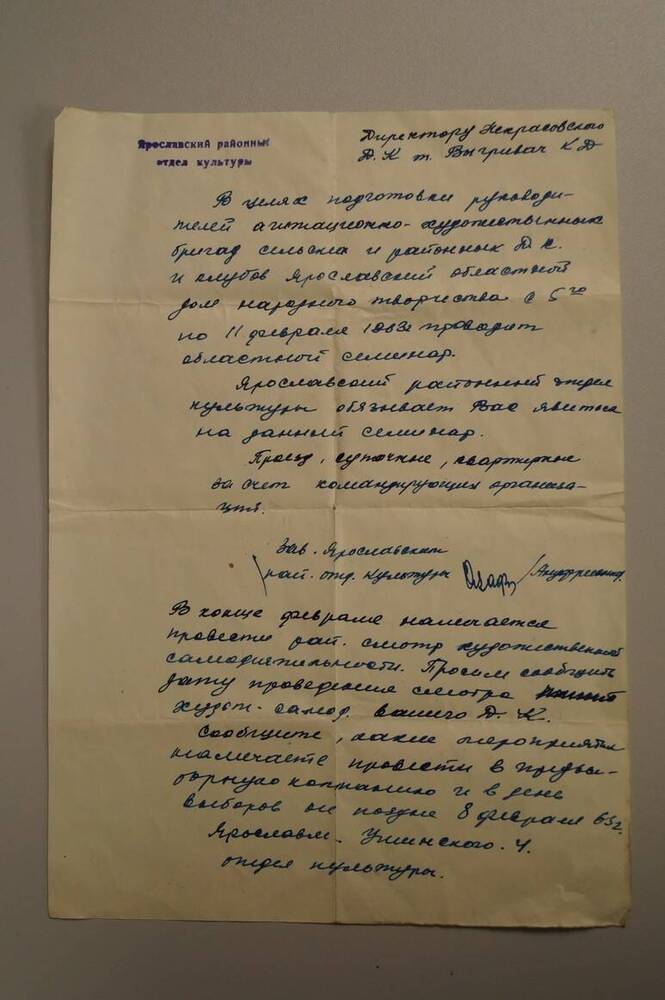 Ярославский районный
отдел культуры
Директору Некрасовского
Д.К т. Выгривач К Д
В целях подготовки руководи-
телей агитационно-художественных
бригад сельских и районных Д.К.
и клубов Ярославский областной
дом народного творчества с 5го
по 11 февраля 1963г проводит
областной семинар.
Ярославский районный отдел
культуры обязывает Вас явиться
на данный семинар.
Проезд, суточные, квартирные
за счет командирующих организа-
ций.
Зав. Ярославским
рай. отд. культуры
В конце февраля намечается
провести рай. смотр художественной
самодеятельности. Просим сообщить
дату проведения смотра
худож. самод. вашего Д.К.
Сообщите, какие мероприятия
намечаете провести в предвы-
борную компанию и в день
выборов не поздне 8 февраля 63г.
Ярославль. Ушинского. 4.
отдел культуры.